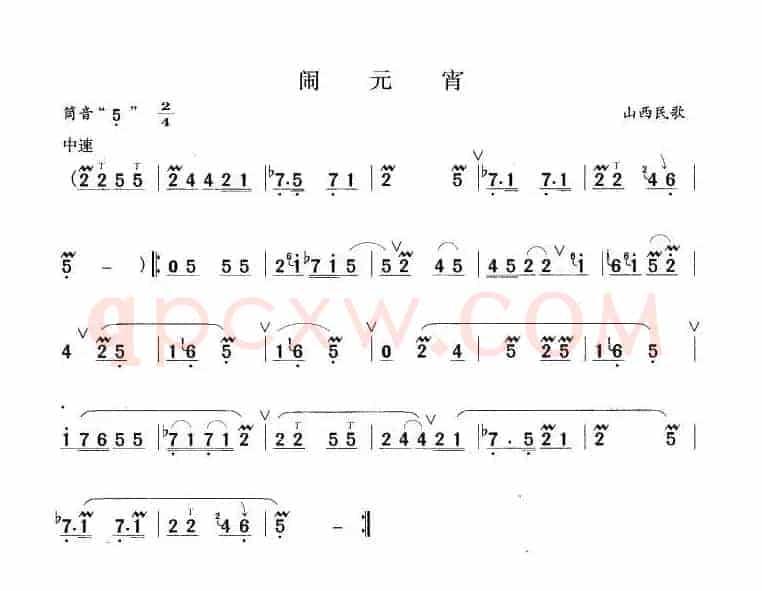 闹 元 宵
筒音“5” 2/4
山西民歌
中速
(2 2 5 5 | 2 4 4 2 1 | ♭7·5 7 1 | 2 5 | ♭7·1 7·1 | 2 2 2 4 6 |
5 – ) ‖: 0 5 5 5 | 2 6 i ♭7 i 5 | 5 2 4 5 | 4 5 2 2 6 i | 1 6 i 5 2 |
4 2 5 | 1 6 5 | 1 6 5 | 0 2 4 | 5 2 5 | 1 6 5 |
i 7 6 5 5 | ♭7 1 7 1 2 | 2 2 5 5 | 2 4 4 2 1 | ♭7·5 2 1 | 2 5 |
♭7·1 7·1 | 2 2 2 4 6 | 5 – :‖
qpcxw.COM